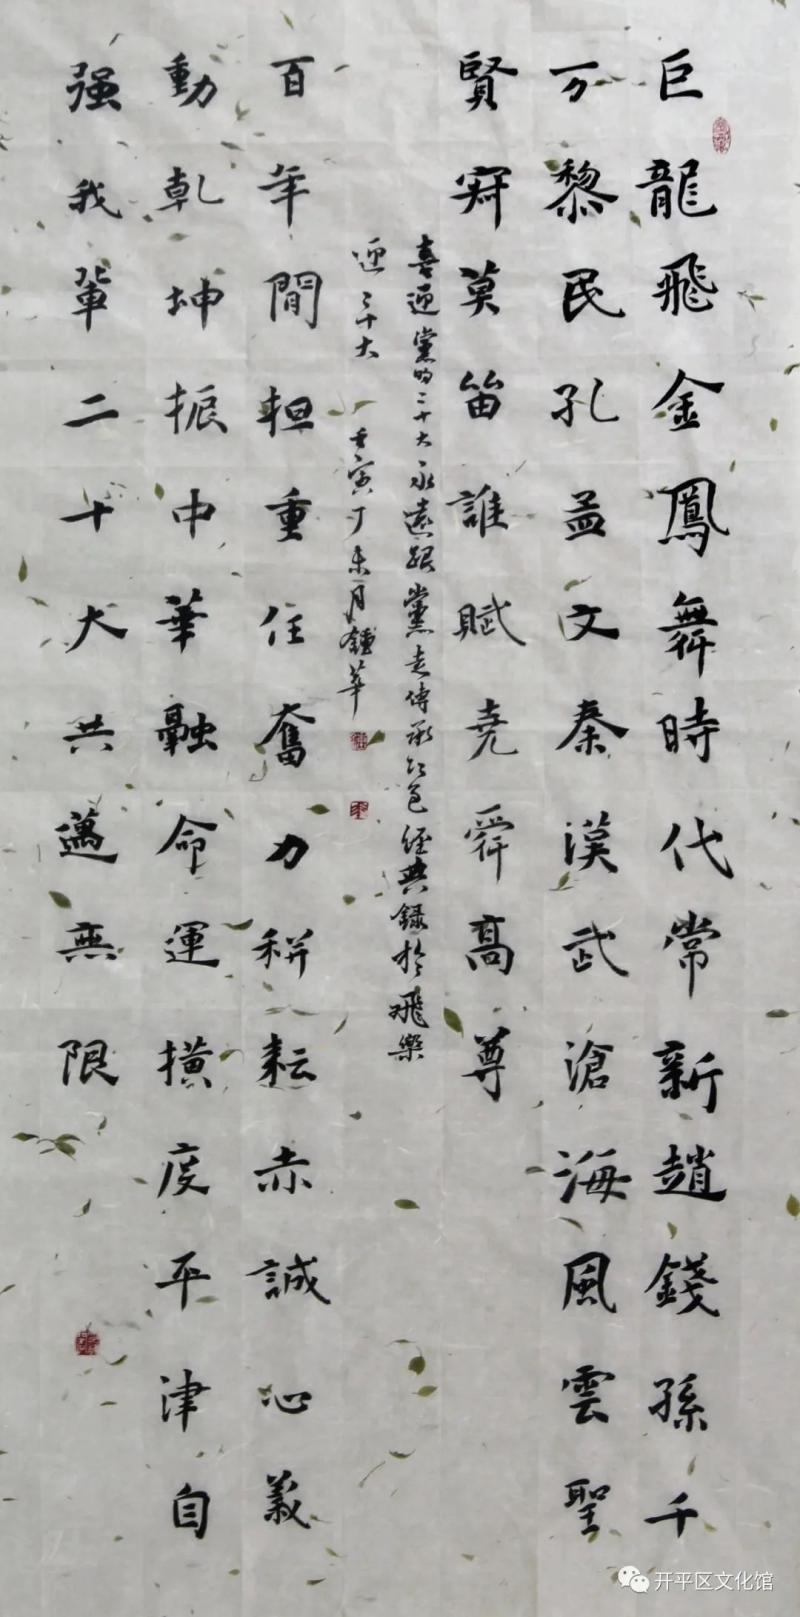 巨龍飛金鳳舞時代常新趙錢孫千
万黎民孔孟文秦漢武滄海風雲聖
賢莫笛誰賦尭舜髙尊
喜迎黨的二十大永遠跟黨走傳承紅色經典錄於飛樂
迎二十大 壬寅丁未月鍾華
百年間担重任奮力耕耘赤誠心義
動乾坤振中華融命運横度平津自
强我輩二十大共邁無限
开平区文化馆